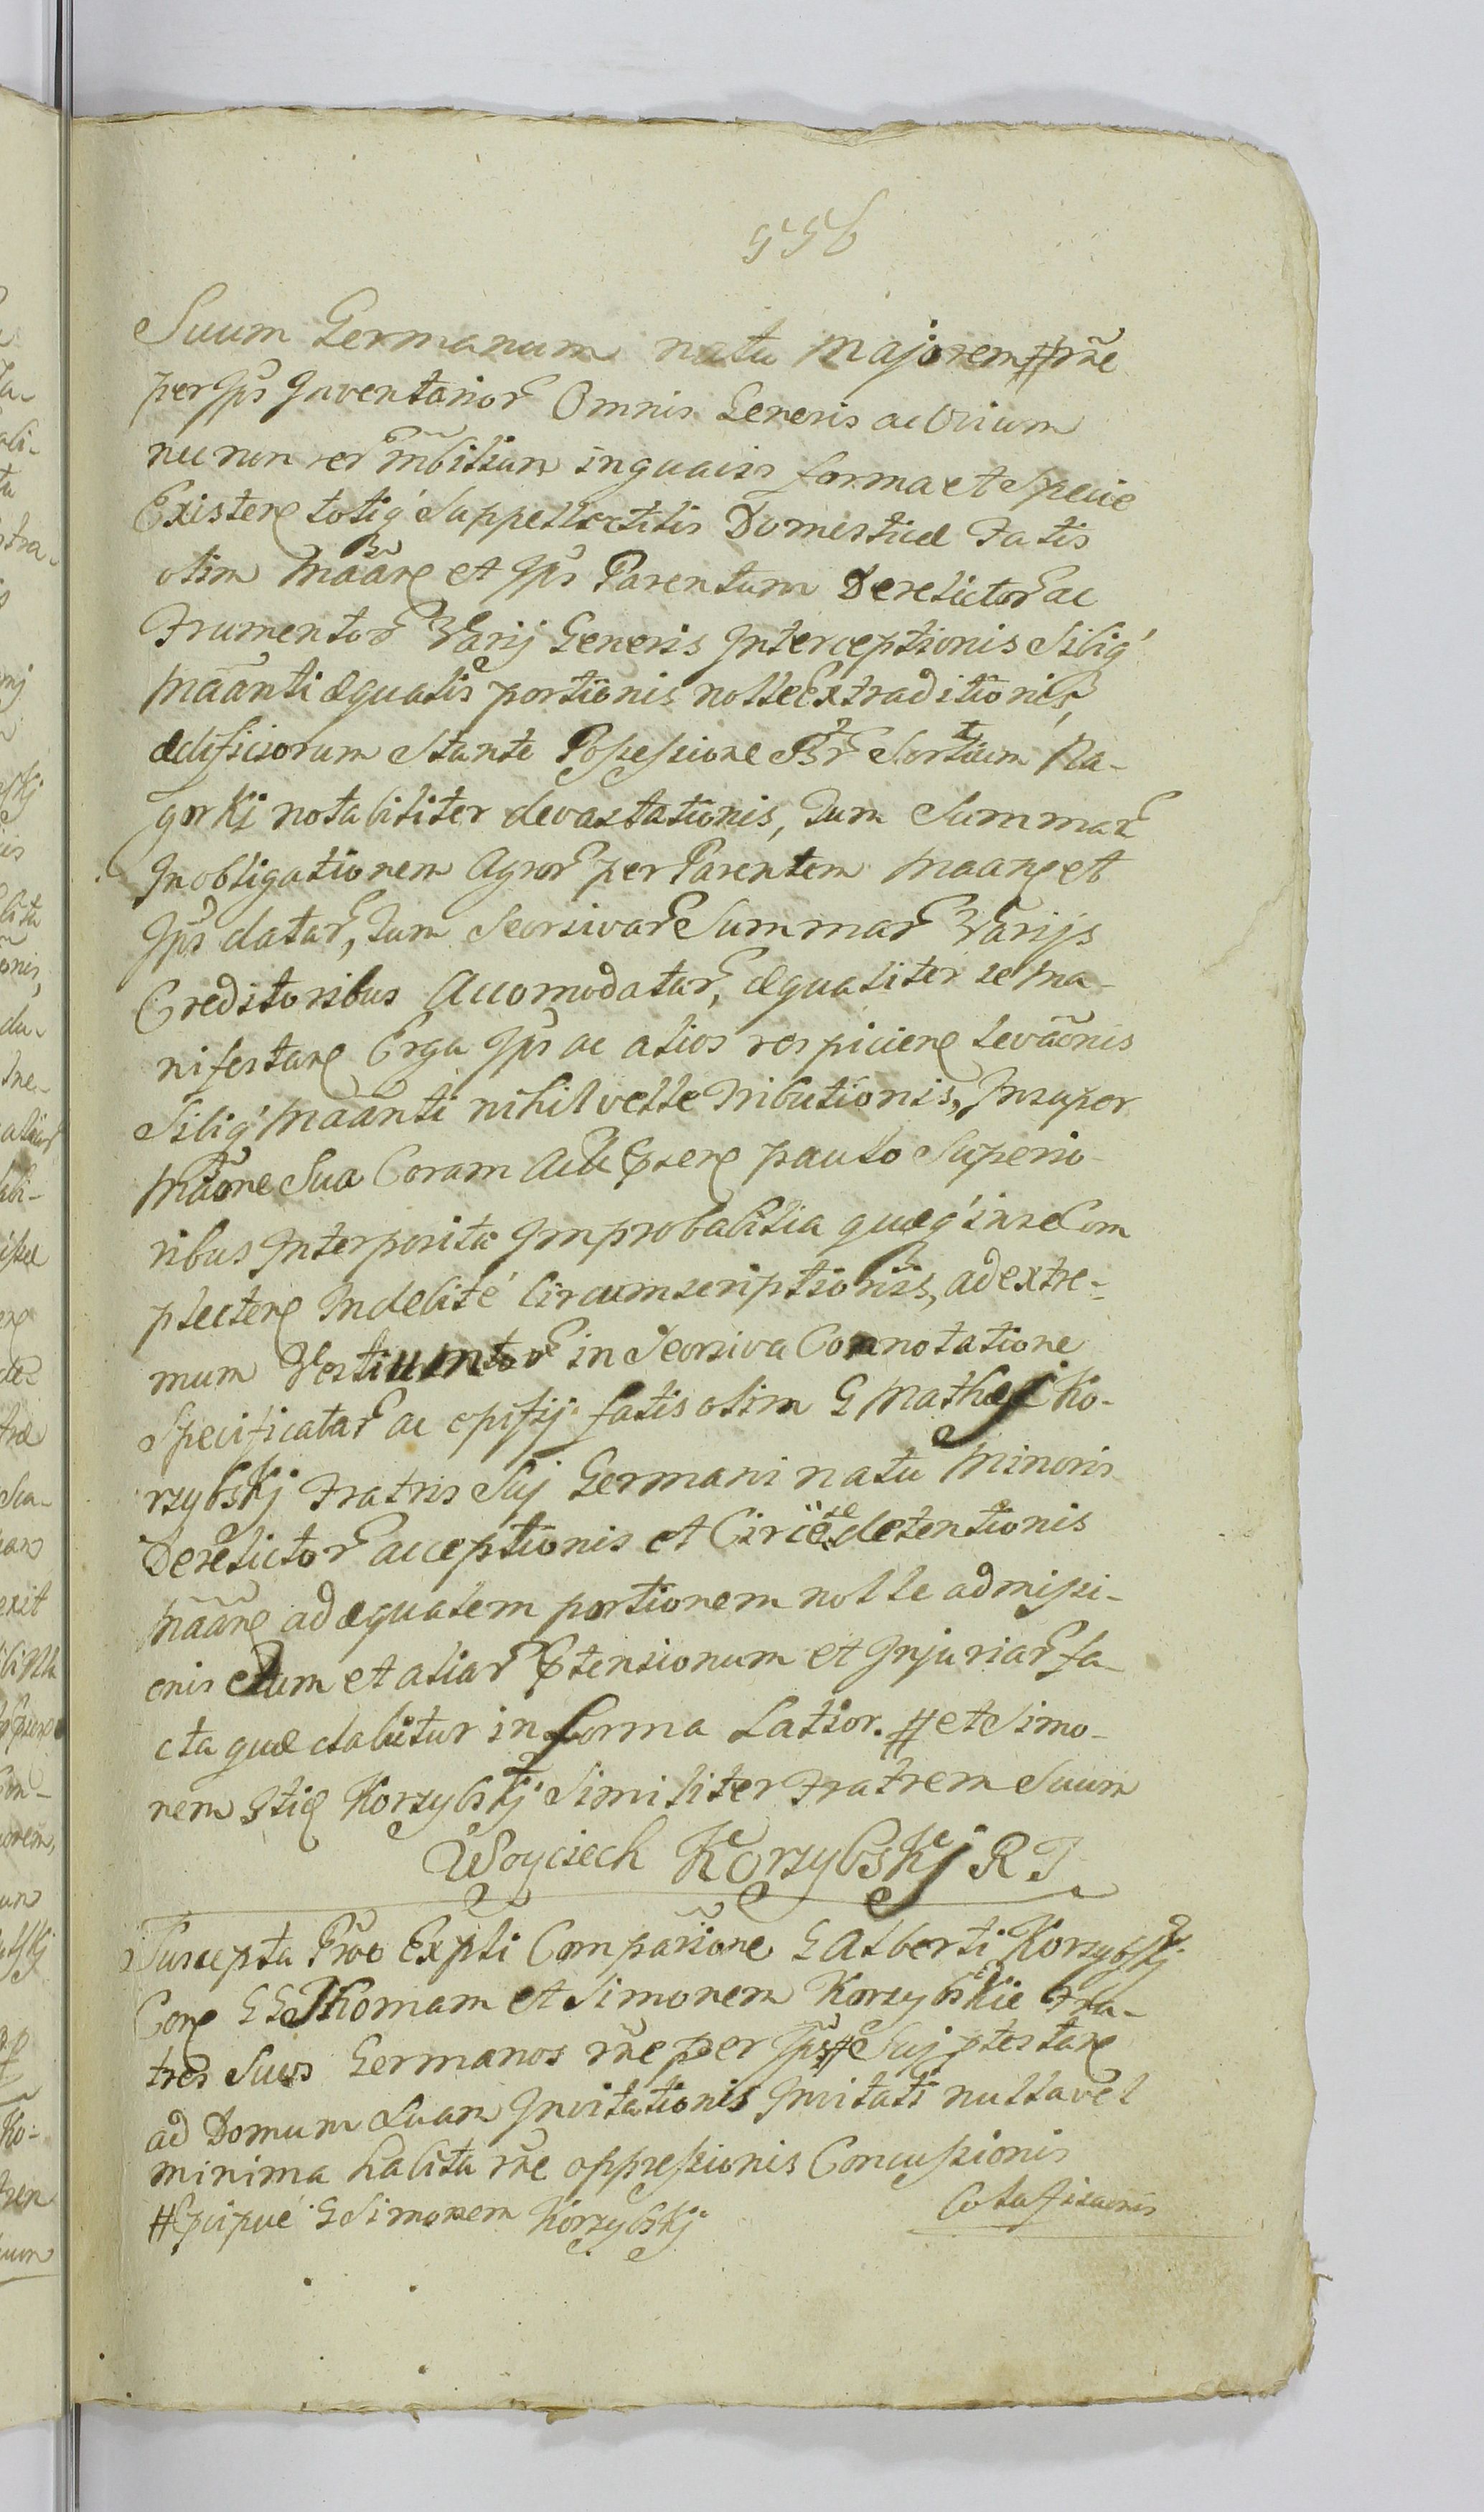 556
Suum Germanum natu Majorem # rñe
per Ips Inventarior Omnis Generis ac Ovium
nec non rer mbilium inquavis forma et Specie
Existen totiq Suppellectilis Domesticæ Fatis
olim Maan et Ips Parentum Derelictor ac
Frumentor Varij Generis Interceptionis Sibiq
Maanti æqualis portionis nolle Extraditionis,
ædificiorum Stante Possessione Sortium Na-
gorki notabiliter devastationis, Tum Summar
In obligationem Agror per Parentem Maan et
Ips datar, Tum Seorsivar Summar Varijs
Creditoribus Accomodatar, æqualiter se Ma-
nifestan Erga Ips ac alios respicien levaonis
Sibiq Maanti nihil velle Tributionis, Insuper
Maone Sua Coram Actis psen paulo Superio-
ribus Interposita Improbabilia quæq in se Com
plecten Indebité Circumscriptionis, ad extre-
mum Vestimentor in Seorsiva Connotatione
Specificatar ac opisij fatis olim G Mathæi Ko-
rzybskj Fratris Suj Germani natu Minoris
Derelictor acceptionis et Circa se detentionis
Maan ad æqualem portionem nolle admissi-
onis Tum et aliar ptensionum et Injuriar fa-
cta quæ dabitur in forma Latior. # et Simo-
nem Itid Korzybskj Similiter Fratrem Suum
Woyciech Korzybskj R J
Suscepta Proe Expti Comparione G Alberti Korzybskj
Con GG Thomam et Simonem Korzybskie Fra-
tres Suos Germanos rñe per Ips # Suj ptestan
ad Domum Suam Invitationis Invitati nulla vel
minima habita rñe oppressionis Concussionis
# pcipue G Simonem Korzybskj